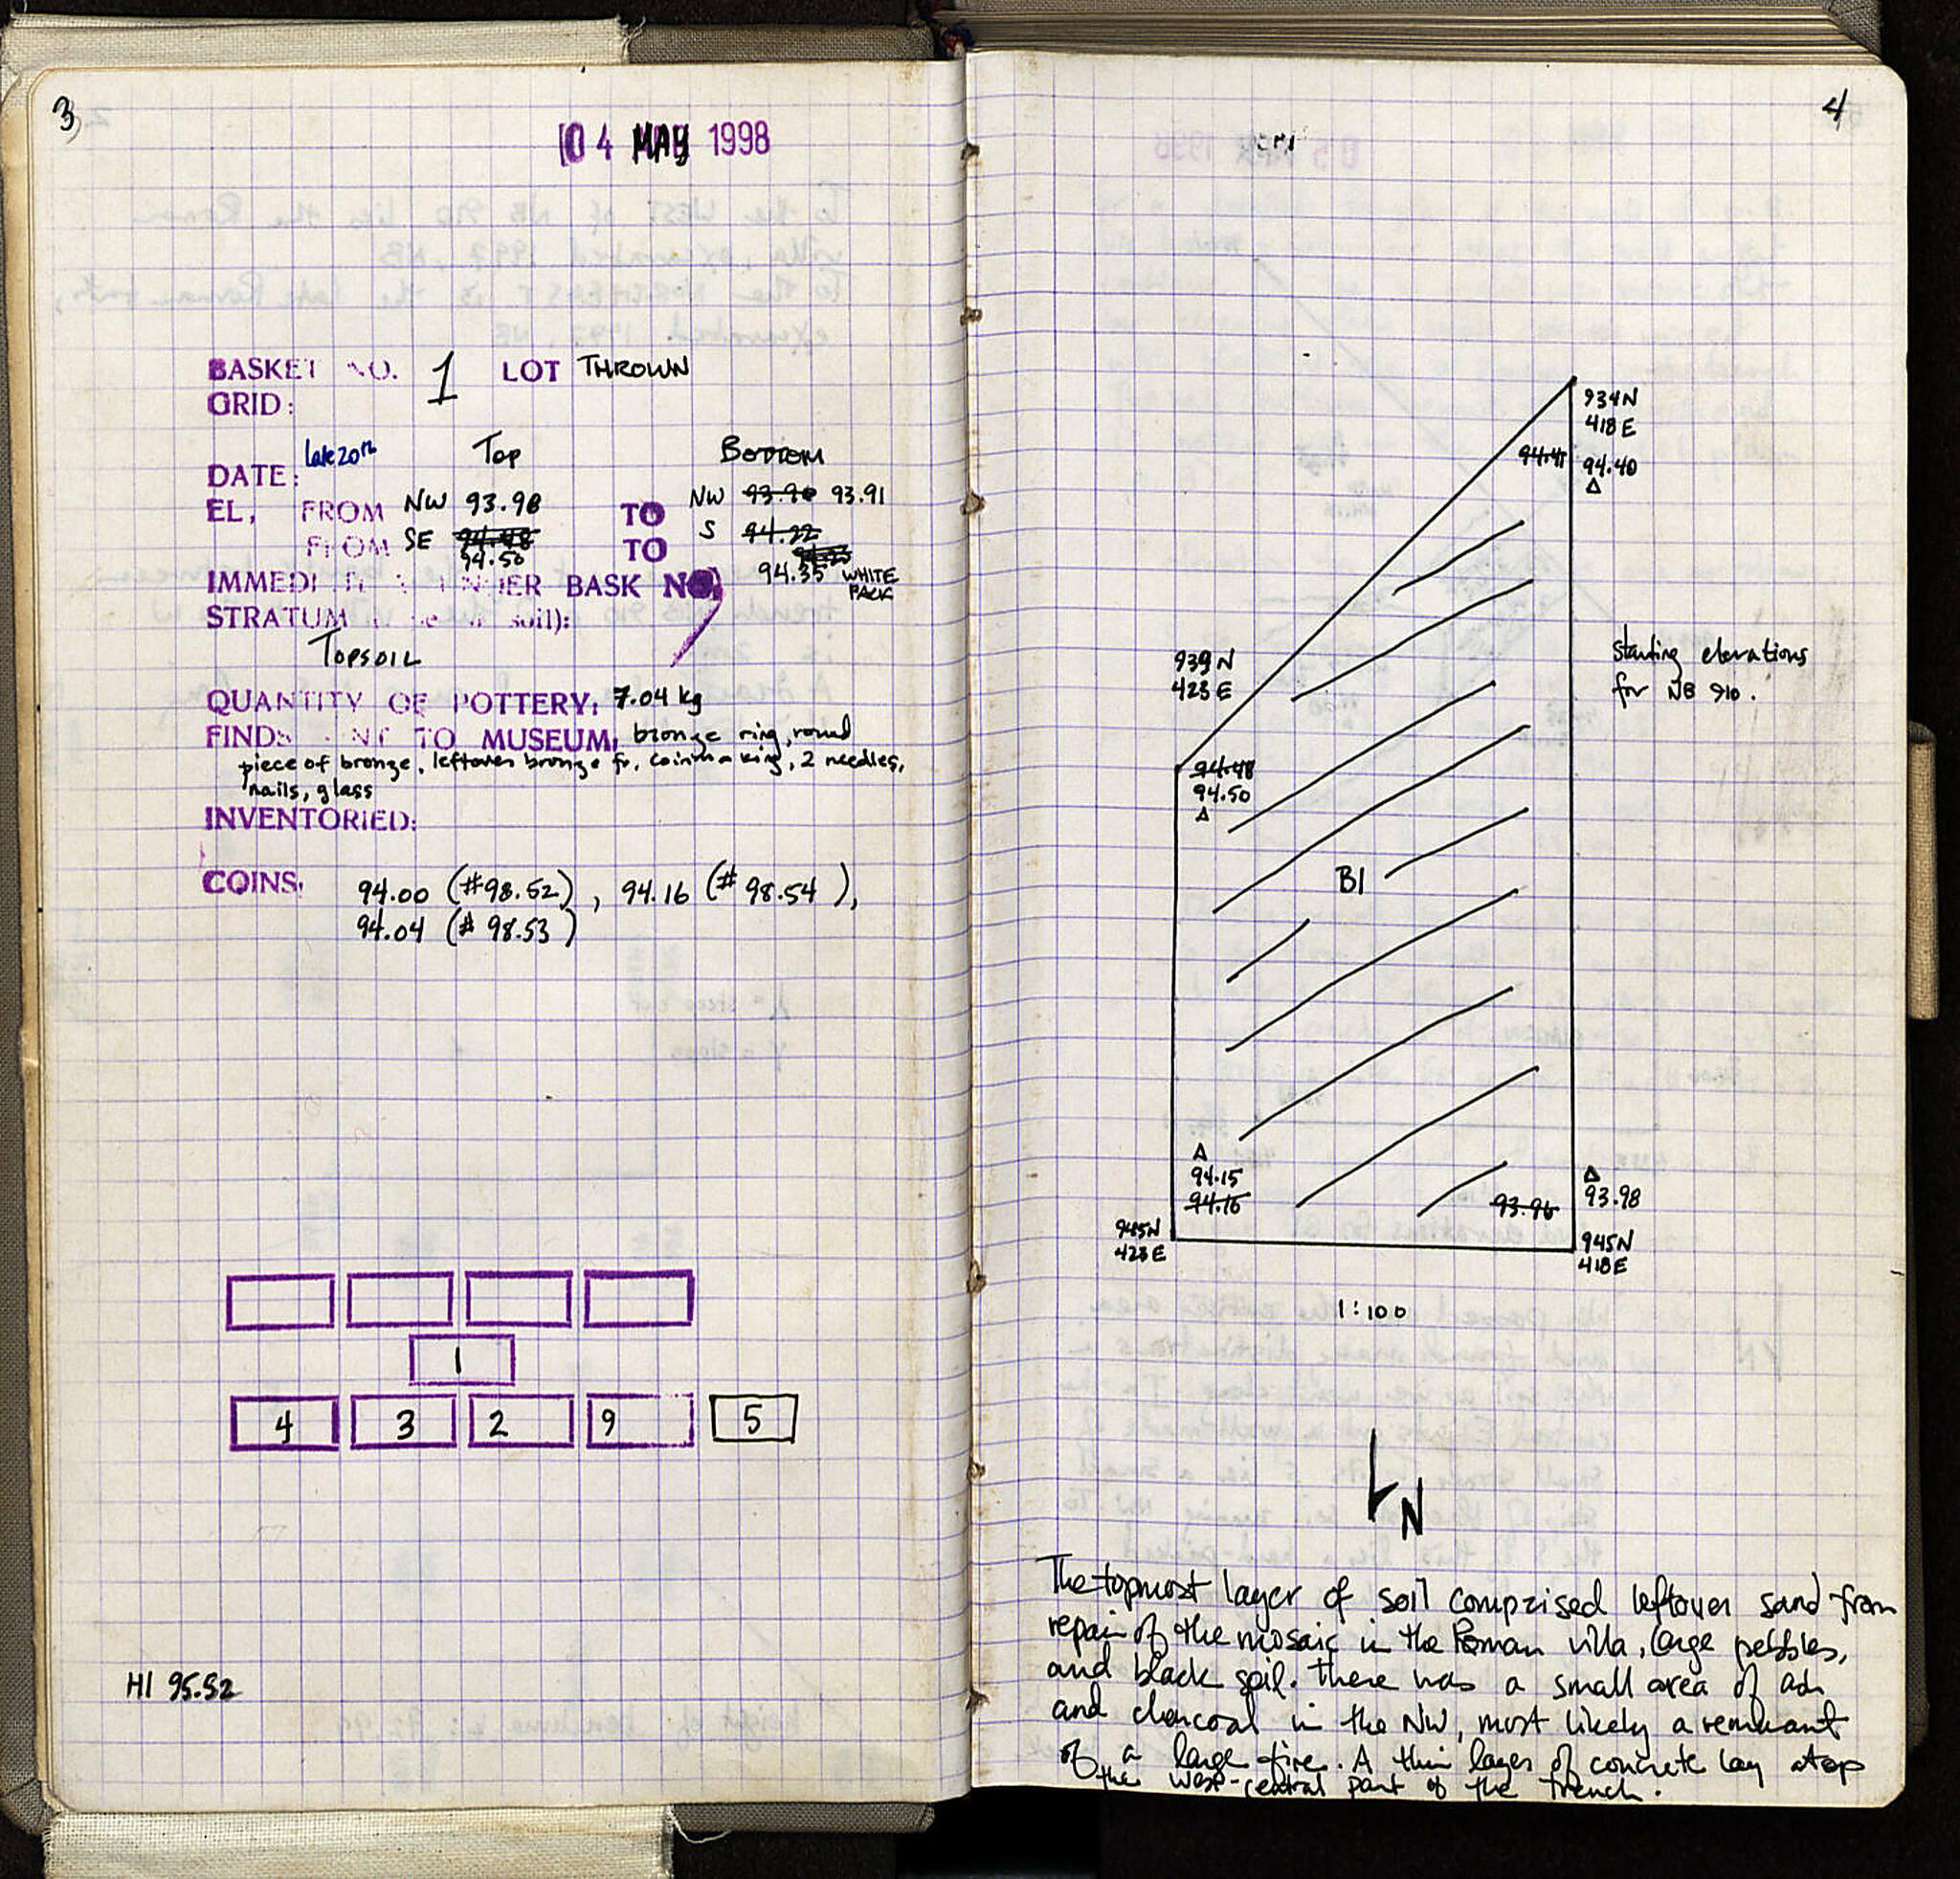 3
04 MAY 1998
BASKET NO. 1 LOT THROWN
GRID:
DATE: Late 20th Top Bottom
EL, FROM NW 93.98 TO NW 93.91
FROM SE 94.50 TO S 94.22
94.35 WHITE PACK
BASK NO,
STRATUM soil):
TOPSOIL
QUANTITY OF POTTERY: 7.04 kg
FINDS TO MUSEUM: bronze ring, round
piece of bronze, leftover bronze fr, 2 needles,
nails, glass
INVENTORIED:
COINS: 94.00 (#98.52), 94.16 (#98.54),
94.04 (#98.53)
1
4 3 2 9 5
HI 95.52
4
934N
418E
94.41 94.40
939N
423E
starting elevations
for NB 910.
94.48
94.50
B1
94.15
94.16
93.96
93.98
945N
423E
945N
418E
1:100
N
The topmost layer of soil comprised leftover sand from
repair of the mosaic in the Roman villa, large pebbles,
and black soil. There was a small area of ash
and charcoal in the NW, most likely a remnant
of a large fire. A thin layer of concrete lay atop
the west-central part of the trench.